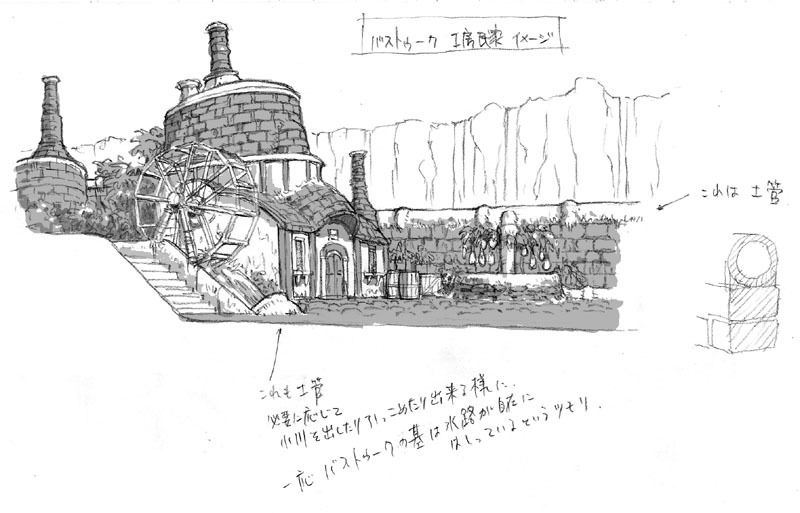 バストゥーク 工房民家 イメージ
これは 土管
これも土管
必要に応じて
小川を出したりひっこめたり出来る様に.
一応 バストゥークの基は水路が自在に
はしっているというツモリ.